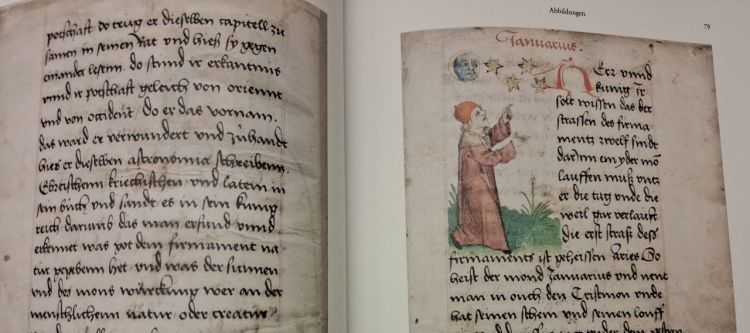 potschaft do trug er dieselben capitell zu
samen in seinen Rat und hieß sy gegen
einander lesenn. do stund ir erkantnis
unnd ir potschaft geleich von orienut
und von occident / do er das vornam.
das ward er verwundert und zuhandt
hies er dieselben astronomia schreibenn.
Ebreischem kriechischen und latein in
sein buch und sandt es in sein kunig
reich darumb das man erfund unnd
erkennet was got dem firmament na
tur gegebenn het und was der sunnen
und des mons würckung wer an der
menschlichenn natur oder creatur
Abbildungen
79
Januarius.
HErr unnd
kunig ir
solt wissen das der
strassen des firma
mentz zwelf sindt
darinn ein yder mo
lauffen muß untz
er die tag unde die
weil gar verlauft
die erst straß deß
firmaments ist geheissen Aries Do
heist der mond Januarius und nent
man in ouch den Cristmon unde
hat seinen schein und seinen louff